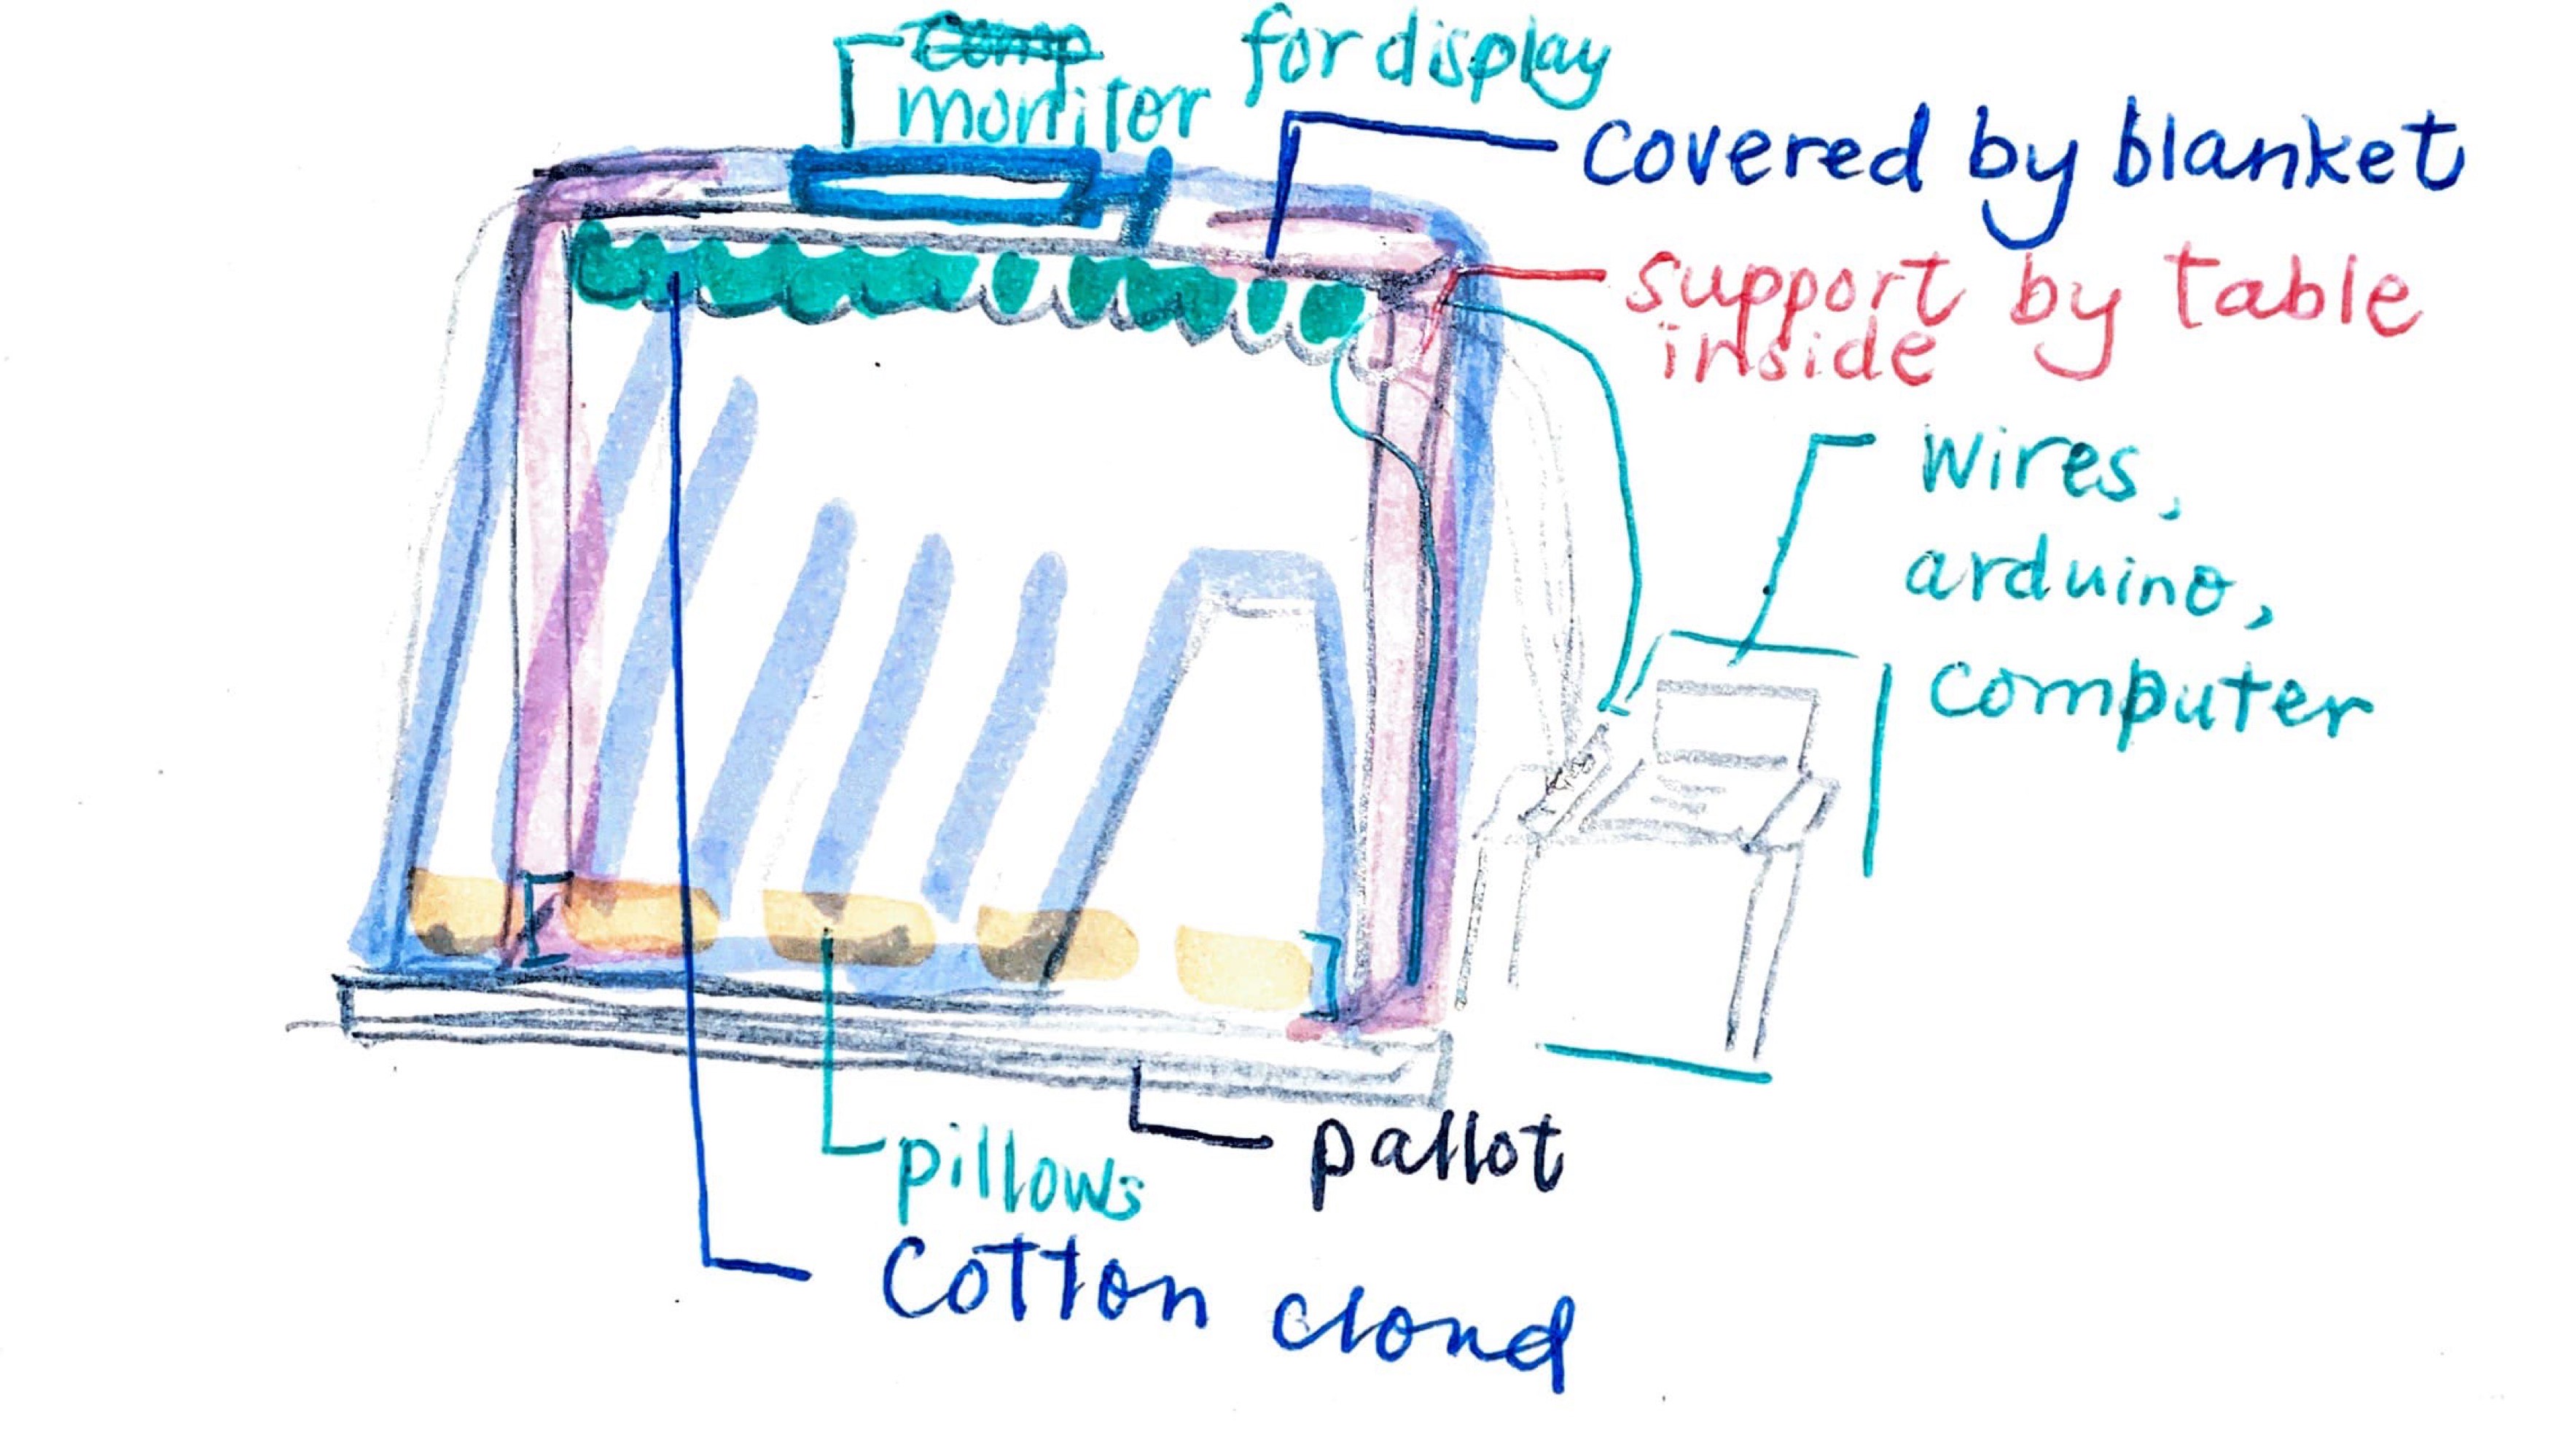 Comp
monitor for display
covered by blanket
support by table
inside
wires,
arduino,
computer
pallot
pillows
Cotton cloud